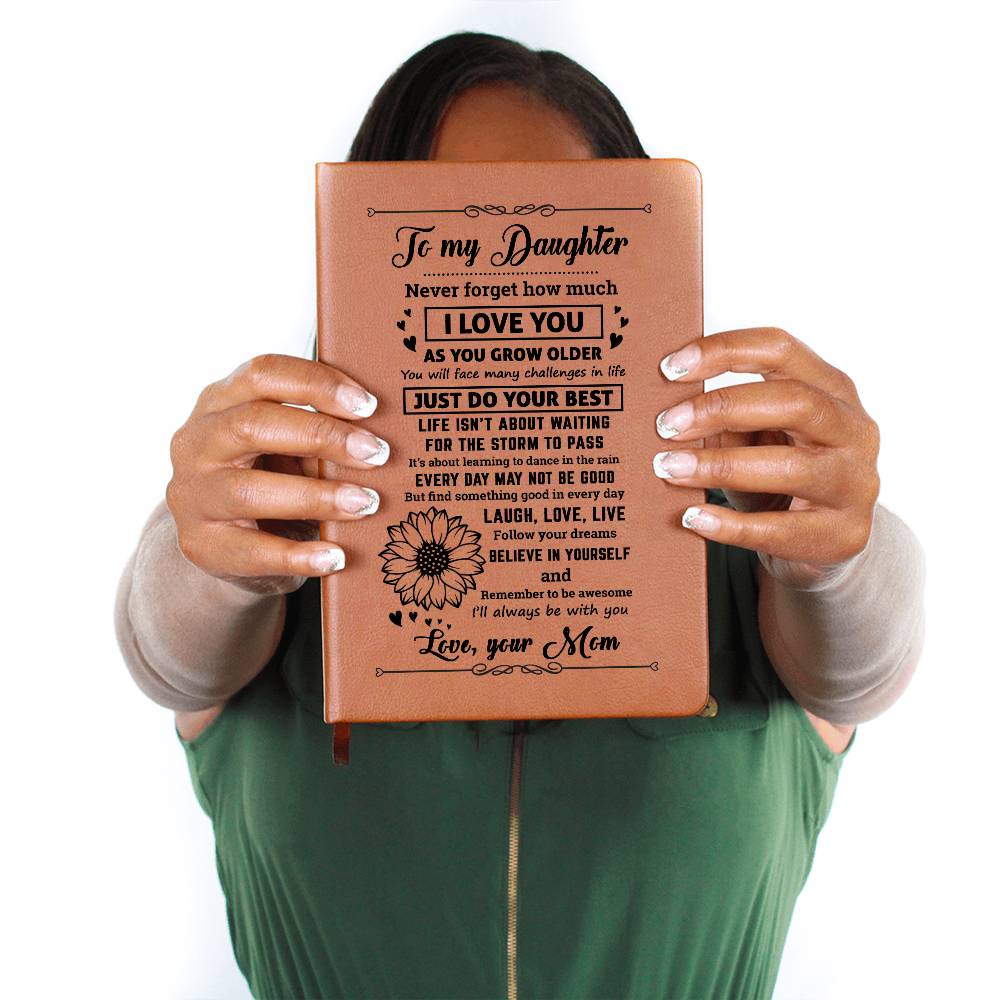 To my Daughter
Never forget how much
I LOVE YOU
AS YOU GROW OLDER
You will face many challenges in life
JUST DO YOUR BEST
LIFE ISN'T ABOUT WAITING
FOR THE STORM TO PASS
It's about learning to dance in the rain
EVERY DAY MAY NOT BE GOOD
But find something good in every day
LAUGH, LOVE, LIVE
Follow your dreams
BELIEVE IN YOURSELF
and
Remember to be awesome
I'll always be with you
Love, your Mom